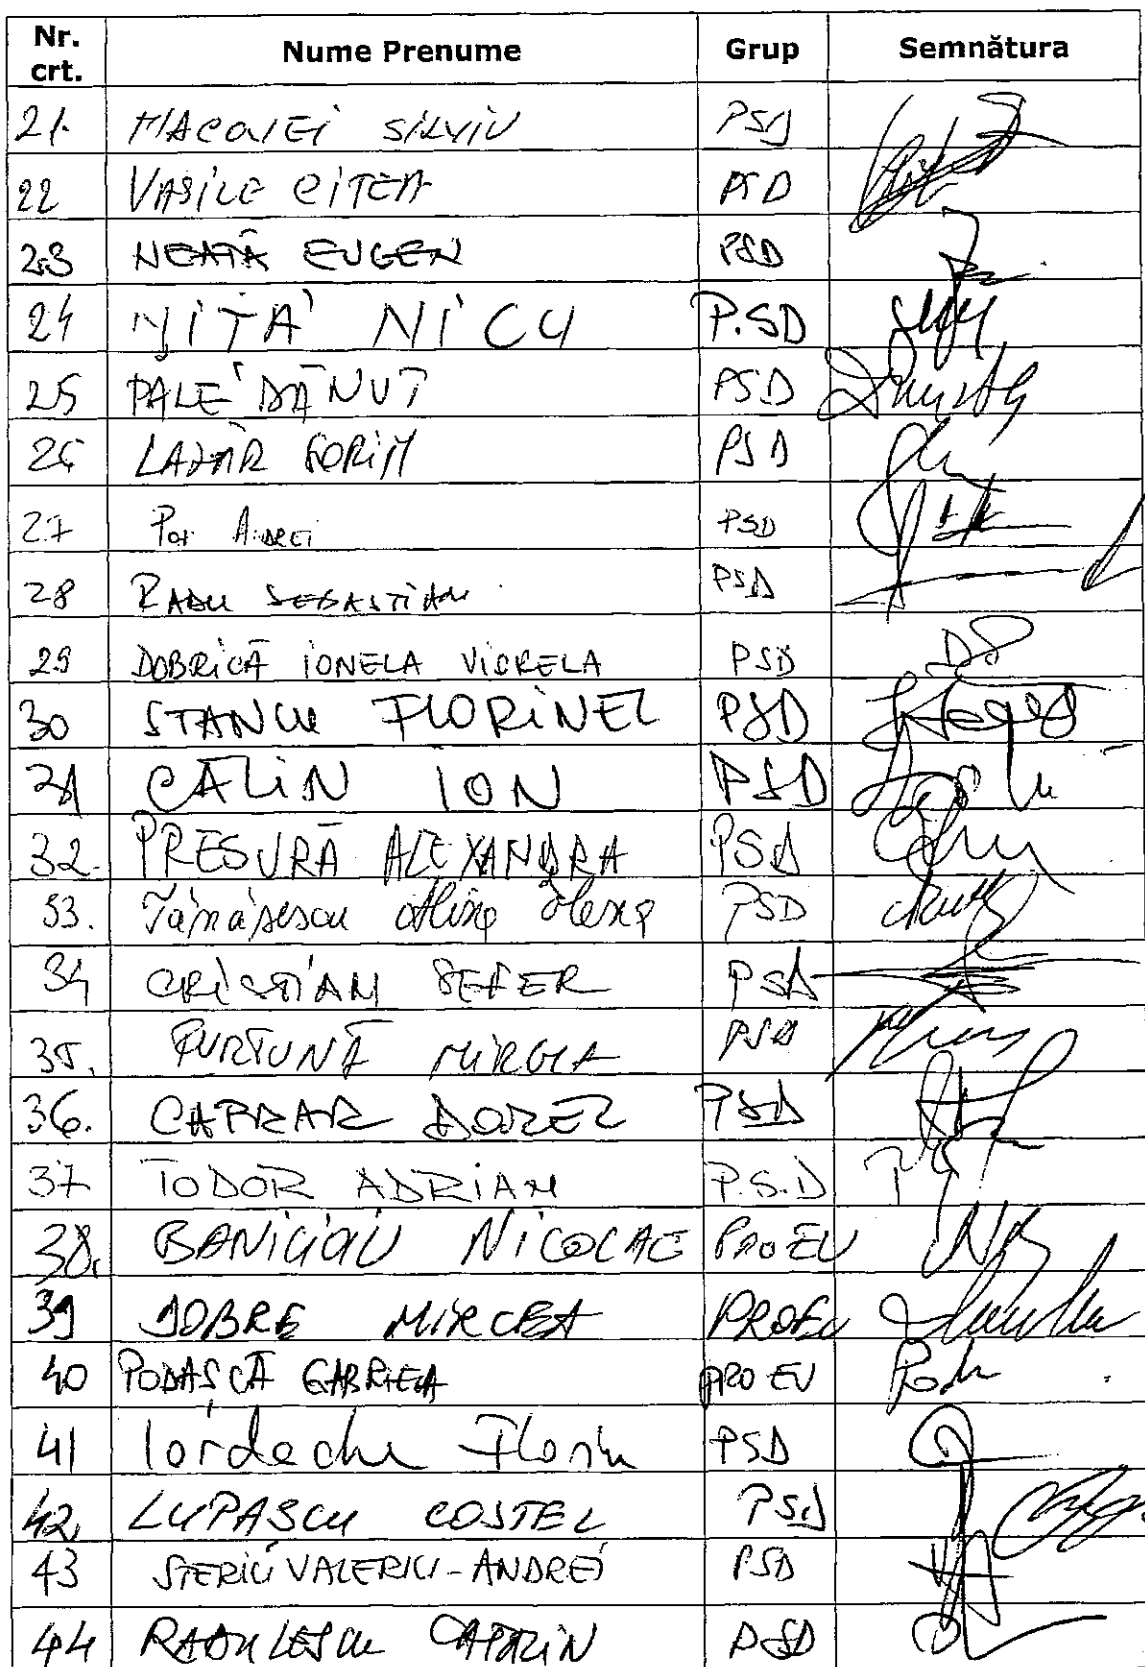 Nr. crt. Nume Prenume Grup Semnătura
21. MACOVEI SILVIU PSD
22 VASILE CÎTEA PSD
23 NEAȚĂ EUGEN PSD
24 NIȚĂ NICU P.SD
25 PALE DĂNUȚ PSD
26 LAZĂR SORIN PSD
27 POP ANDREI PSD
28 RADU SEBASTIAN PSD
29 DOBRICĂ IONELA VIORELA PSD
30 STANCU FLORINEL PSD
31 CĂLIN ION PSD
32. PRESURĂ ALEXANDRA PSD
33. Tănăsescu Alina Elena PSD
34 CRISTIAN SEFER PSD
35. FURTUNĂ MIRCEA PSD
36. CAPRAR DOREL PSD
37 TODOR ADRIAN P.S.D
38. BANICIOIU NICOLAE PRO EU
39 DOBRE MIRCEA PROEU
40 PODAȘCĂ GABRIELA PRO EU
41 Iordache Florin PSD
42. LUPASCU COSTEL PSD
43 STERIU VALERIU-ANDREI PSD
44 RADULESCU CATALIN PSD